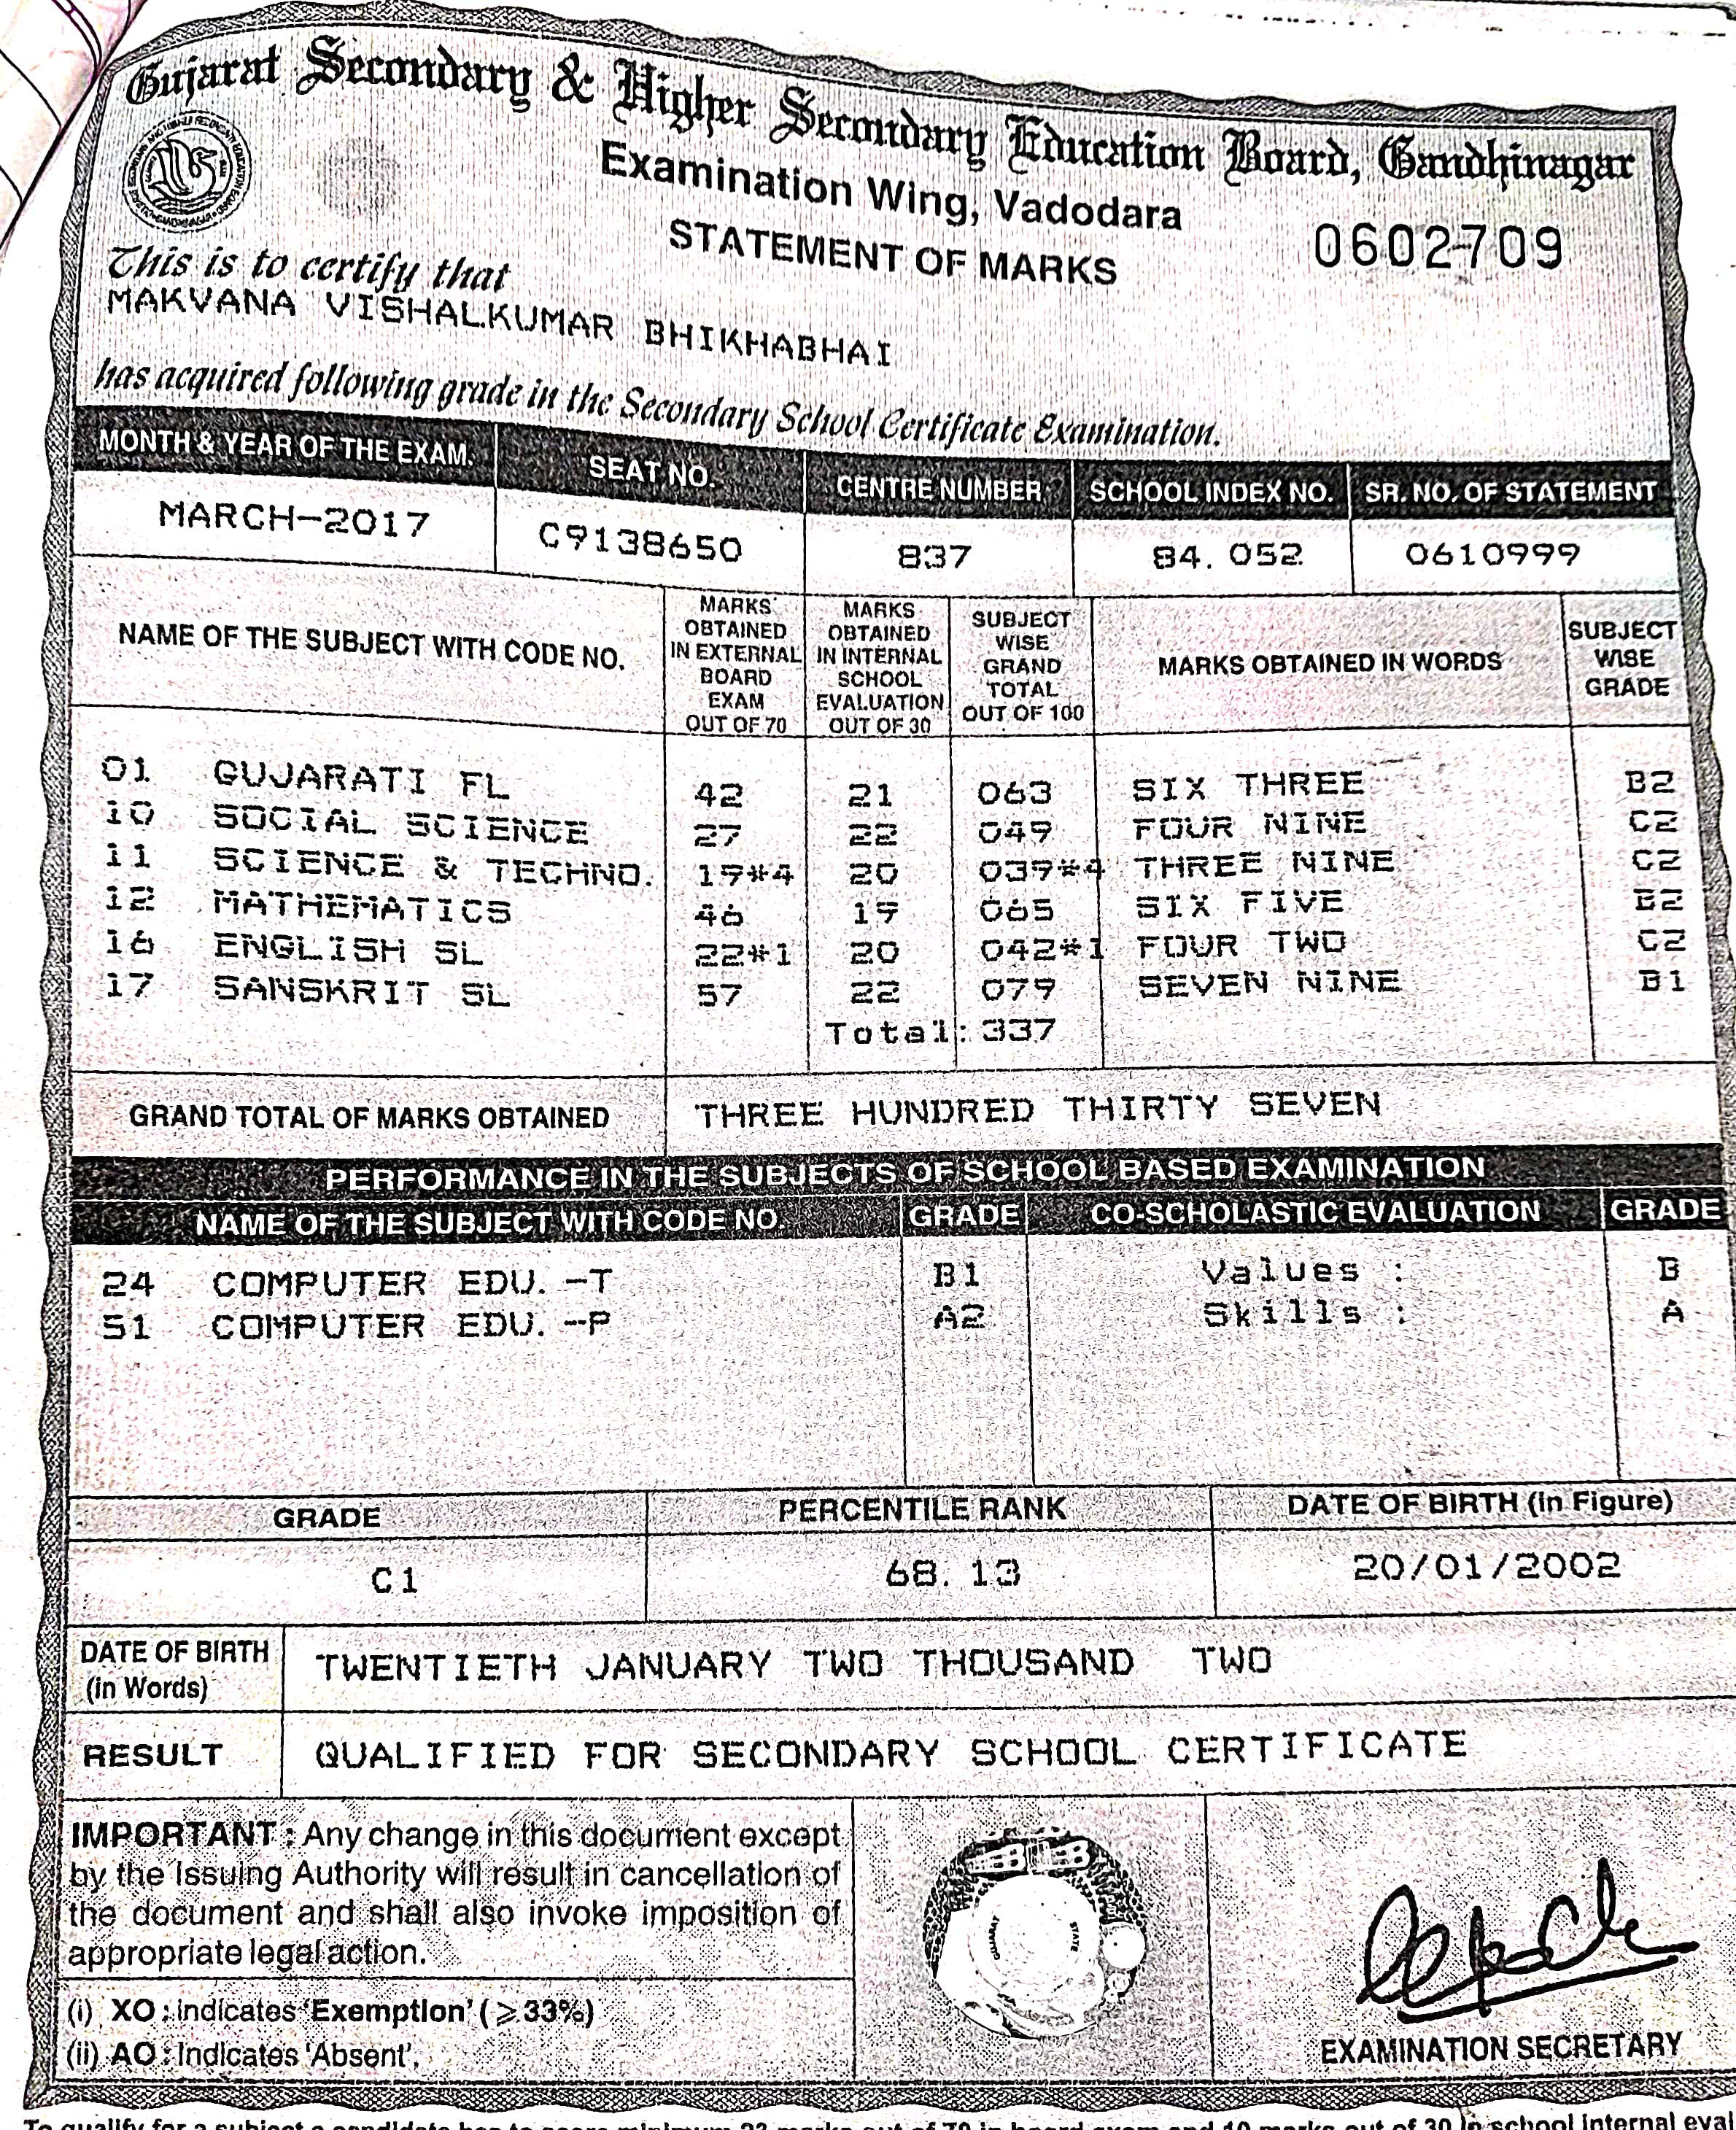 Gujarat Secondary & Higher Secondary Education Board, Gandhinagar
Examination Wing, Vadodara
STATEMENT OF MARKS
0602709
This is to certify that
MAKVANA VISHALKUMAR BHIKHABHAI
has acquired following grade in the Secondary School Certificate Examination.
MONTH & YEAR OF THE EXAM. SEAT NO. CENTRE NUMBER SCHOOL INDEX NO. SR. NO. OF STATEMENT
MARCH-2017 C9138650 837 84. 052 0610999
NAME OF THE SUBJECT WITH CODE NO.
MARKS OBTAINED IN EXTERNAL BOARD EXAM OUT OF 70
MARKS OBTAINED IN INTERNAL SCHOOL EVALUATION OUT OF 30
SUBJECT WISE GRAND TOTAL OUT OF 100
MARKS OBTAINED IN WORDS
SUBJECT WISE GRADE
01 GUJARATI FL 42 21 063 SIX THREE B2
10 SOCIAL SCIENCE 27 22 049 FOUR NINE C2
11 SCIENCE & TECHNO. 19#4 20 039#4 THREE NINE C2
12 MATHEMATICS 46 19 065 SIX FIVE B2
16 ENGLISH SL 22#1 20 042#1 FOUR TWO C2
17 SANSKRIT SL 57 22 079 SEVEN NINE B1
Total: 337
GRAND TOTAL OF MARKS OBTAINED THREE HUNDRED THIRTY SEVEN
PERFORMANCE IN THE SUBJECTS OF SCHOOL BASED EXAMINATION
NAME OF THE SUBJECT WITH CODE NO. GRADE CO-SCHOLASTIC EVALUATION GRADE
24 COMPUTER EDU. -T B1 Values : B
51 COMPUTER EDU. -P A2 Skills : A
GRADE PERCENTILE RANK DATE OF BIRTH (In Figure)
C1 68. 13 20/01/2002
DATE OF BIRTH (in Words) TWENTIETH JANUARY TWO THOUSAND TWO
RESULT QUALIFIED FOR SECONDARY SCHOOL CERTIFICATE
IMPORTANT : Any change in this document except
by the Issuing Authority will result in cancellation of
the document and shall also invoke imposition of
appropriate legal action.
(i) XO : indicates 'Exemption' (≥33%)
(ii) AO : Indicates 'Absent'.
GUJARAT STATE
EXAMINATION SECRETARY
To qualify for a subject a candidate has to score minimum 23 marks out of 70 in board exam and 10 marks out of 30 in school internal eval